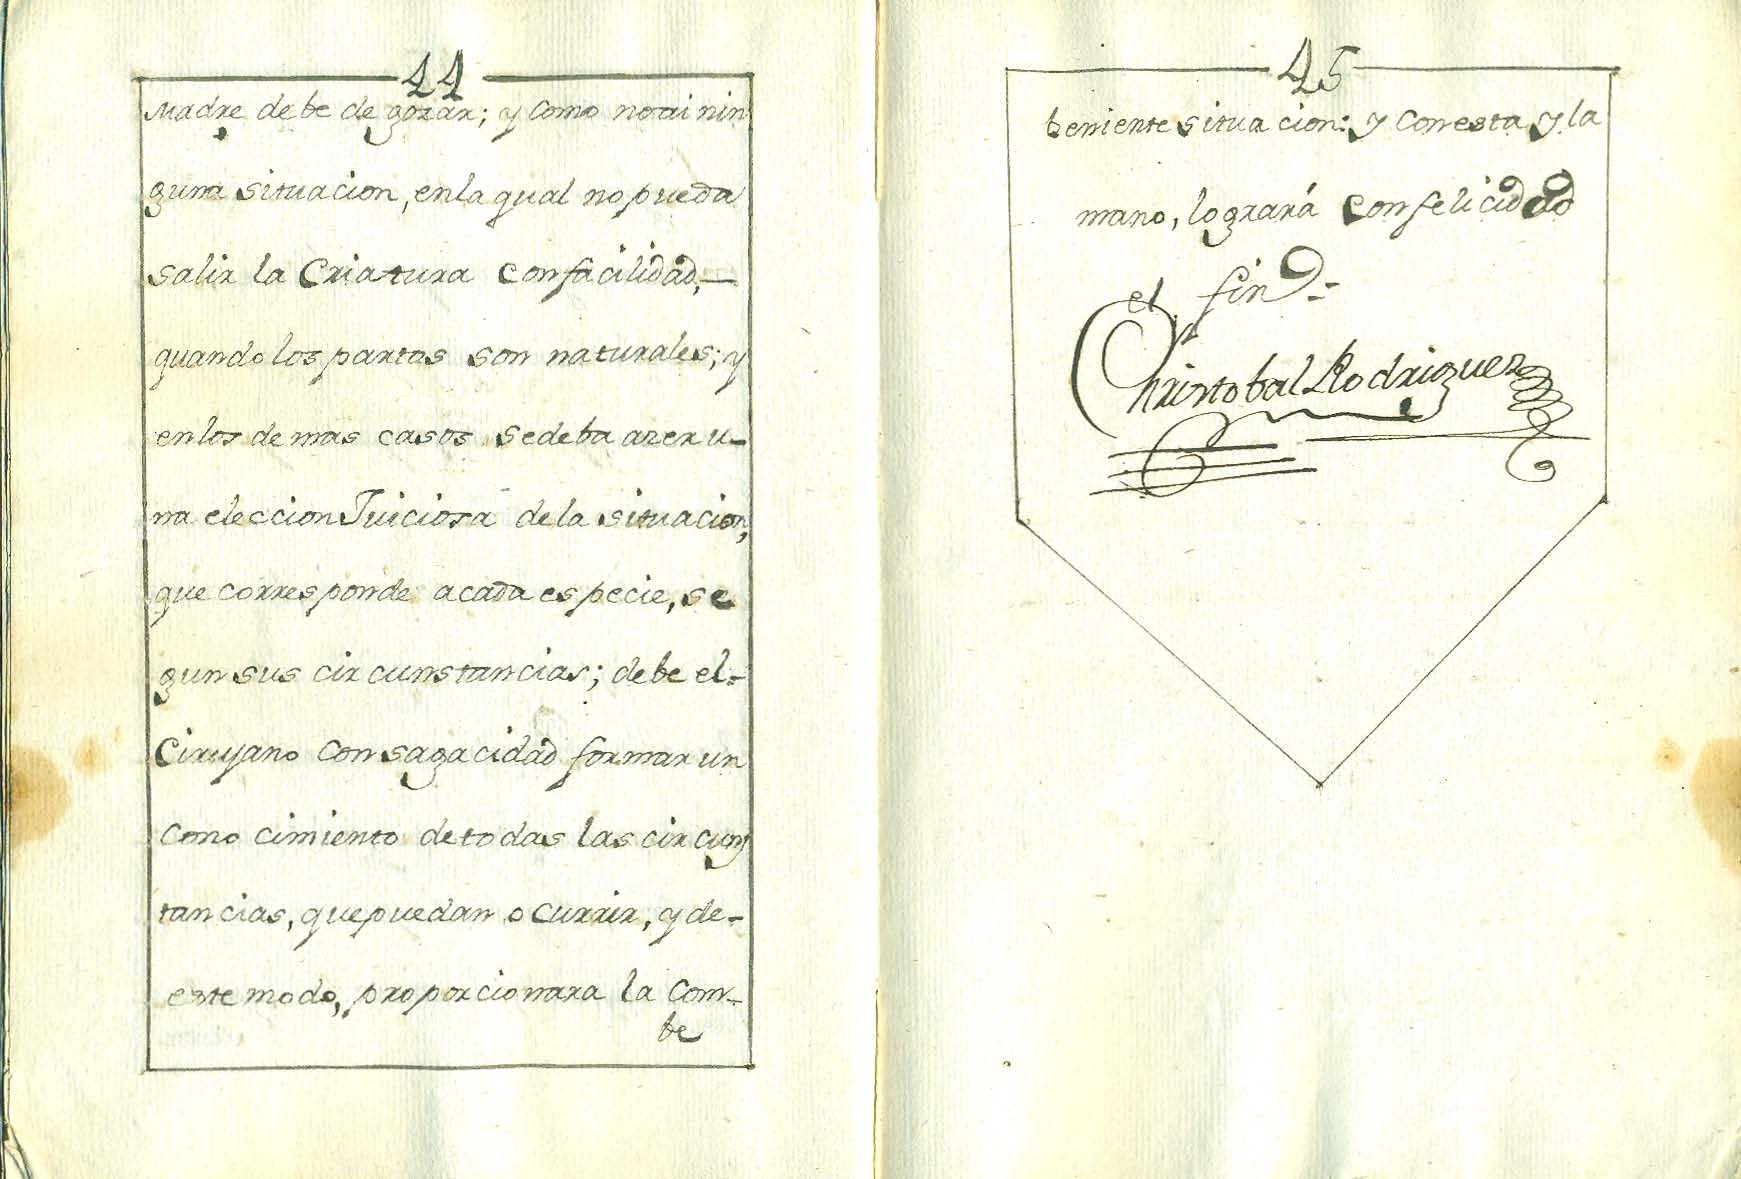 44
Madre debe de gozar; y como no ai nin
guna situacion, en la qual no pueda
salir la Criatura con facilidad,—
quando los partos son naturales; y
en los demas casos se deba azer u-
na eleccion Juiciosa de la situacion,
que corresponde a cada especie, se
gun sus circunstancias; debe el=
Cirujano con sagacidad formar un
cono cimiento de todas las circuns
tancias, que puedan ocurrir, y de-
este modo, proporcionara la com-
be
45
beniente situacion: y con esta y la
mano, logrará con felicidad
el fin=
Christobal Rodriguez